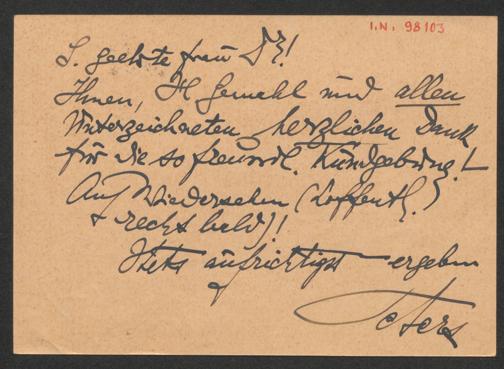 I.N. 98103
S. geehrte Frau Dr!
Ihnen, H Gemahl und allen
Unterzeichneten herzlichen Dank
für die so freundl. Kundgebung!
Auf Wiedersehen (hoffentl.
+ recht bald)!
Stets aufrichtigst ergeben
Peters